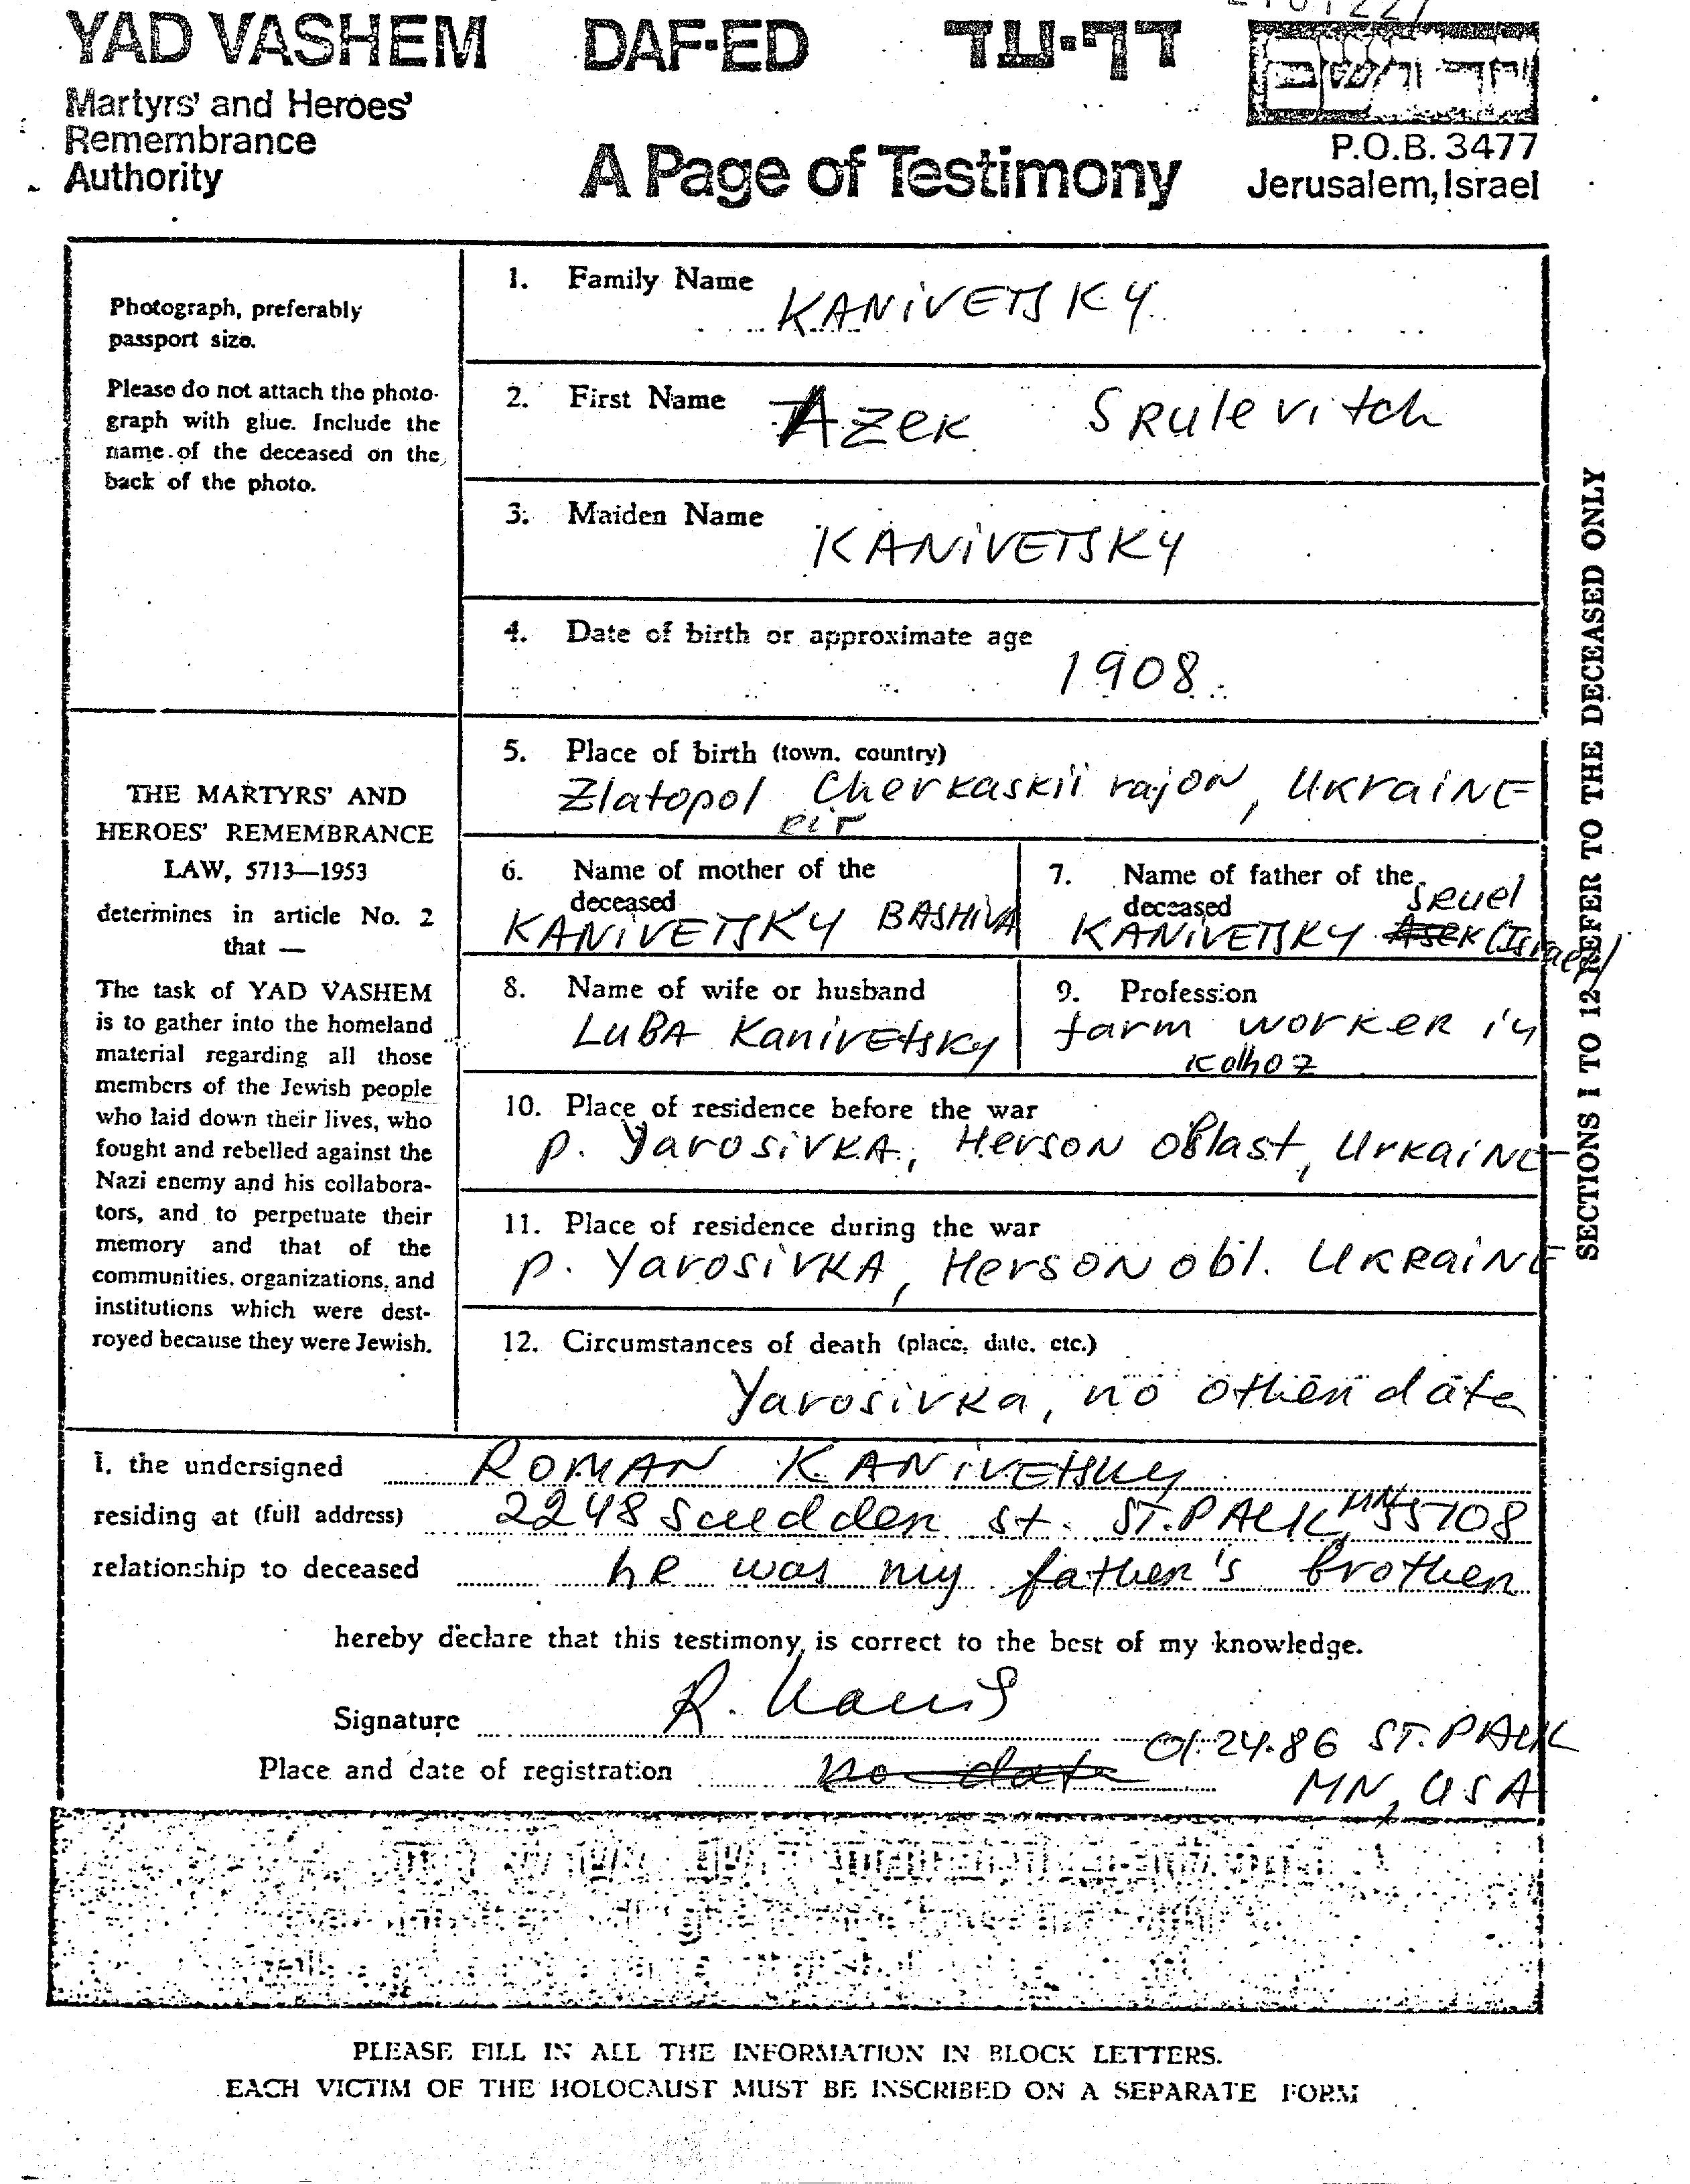 YAD VASHEM DAF-ED דף-עד
Martyrs' and Heroes'
Remembrance
Authority
A Page of Testimony
יד ושם
P.O.B. 3477
Jerusalem, Israel
Photograph, preferably
passport size.
Please do not attach the photo-
graph with glue. Include the
name of the deceased on the
back of the photo.
THE MARTYRS' AND
HEROES' REMEMBRANCE
LAW, 5713—1953
determines in article No. 2
that —
The task of YAD VASHEM
is to gather into the homeland
material regarding all those
members of the Jewish people
who laid down their lives, who
fought and rebelled against the
Nazi enemy and his collabora-
tors, and to perpetuate their
memory and that of the
communities, organizations, and
institutions which were dest-
royed because they were Jewish.
1. Family Name
KANIVETSKY
2. First Name
Azek Srulevitch
3. Maiden Name
KANIVETSKY
4. Date of birth or approximate age
1908
5. Place of birth (town, country)
Zlatopol Cherkaskii rajon, UkraiNE
6. Name of mother of the
deceased
KANIVETSKY BASHIVA
7. Name of father of the
deceased
Sruel
KANIVETSKY Asek (Israel)
8. Name of wife or husband
LUBA KanivEtsky
9. Profession
farm workER in
kolhoz
10. Place of residence before the war
p. YarosivkA, HersoN oblast, UrkaiNE
11. Place of residence during the war
p. YarosivkA, HersoN obl. UKRaiNE
12. Circumstances of death (place, date, etc.)
Yarosivka, no other date
SECTIONS 1 TO 12 REFER TO THE DECEASED ONLY
I, the undersigned ROMAN KANIVETSKY
residing at (full address) 2248 Scudder St. ST. PAUL MN 55108
relationship to deceased he was my father's brother
hereby declare that this testimony is correct to the best of my knowledge.
Signature
Place and date of registration no date 01.24.86 ST. PAUL
MN, USA
PLEASE FILL IN ALL THE INFORMATION IN BLOCK LETTERS.
EACH VICTIM OF THE HOLOCAUST MUST BE INSCRIBED ON A SEPARATE FORM